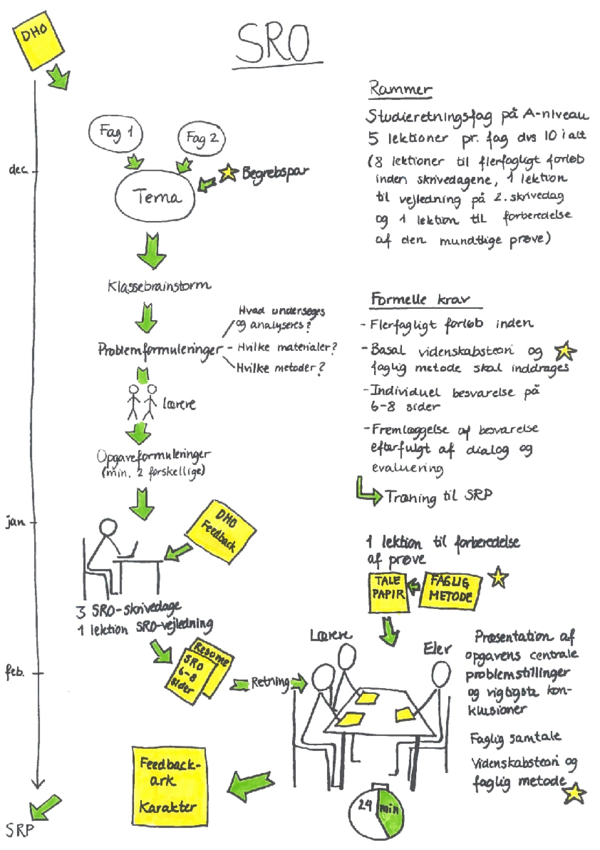 SRO
DHO
Rammer
Studieretningsfag på A-niveau
5 lektioner pr. fag dvs 10 i alt
(8 lektioner til flerfagligt forløb
inden skrivedagene, 1 lektion
til vejledning på 2. skrivedag
og 1 lektion til forberedelse
af den mundtlige prøve)
Fag 1
Fag 2
dec.
Begrebspar
Tema
Klassebrainstorm
Hvad undersøges
og analyseres?
Problemformuleringer
Hvilke materialer?
Hvilke metoder?
lærere
Opgaveformuleringer
(min. 2 forskellige)
Formelle krav
- Flerfagligt forløb inden
- Basal videnskabsteori og
faglig metode skal inddrages
- Individuel besvarelse på
6-8 sider
- Fremlæggelse af besvarelse
efterfulgt af dialog og
evaluering
Træning til SRP
jan.
DHO
Feedback
3 SRO-skrivedage
1 lektion SRO-vejledning
1 lektion til forberedelse
af prøve
TALE
PAPIR
FAGLIG
METODE
feb.
Resume
SRO
6-8
sider
Retning
Lærere
Elev
Præsentation af
opgavens centrale
problemstillinger
og vigtigste kon-
klusioner
Faglig samtale
Videnskabsteori og
faglig metode
24 min
Feedback-
ark
Karakter
SRP